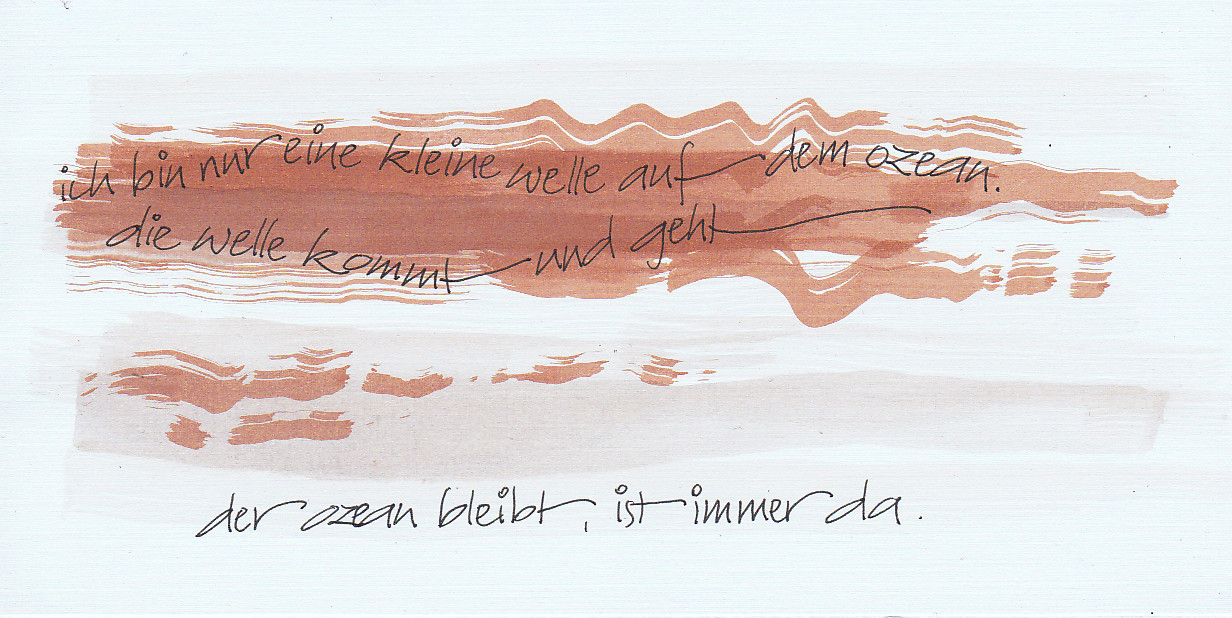 ich bin nur eine kleine welle auf dem ozean.
die welle kommt und geht
der ozean bleibt, ist immer da.